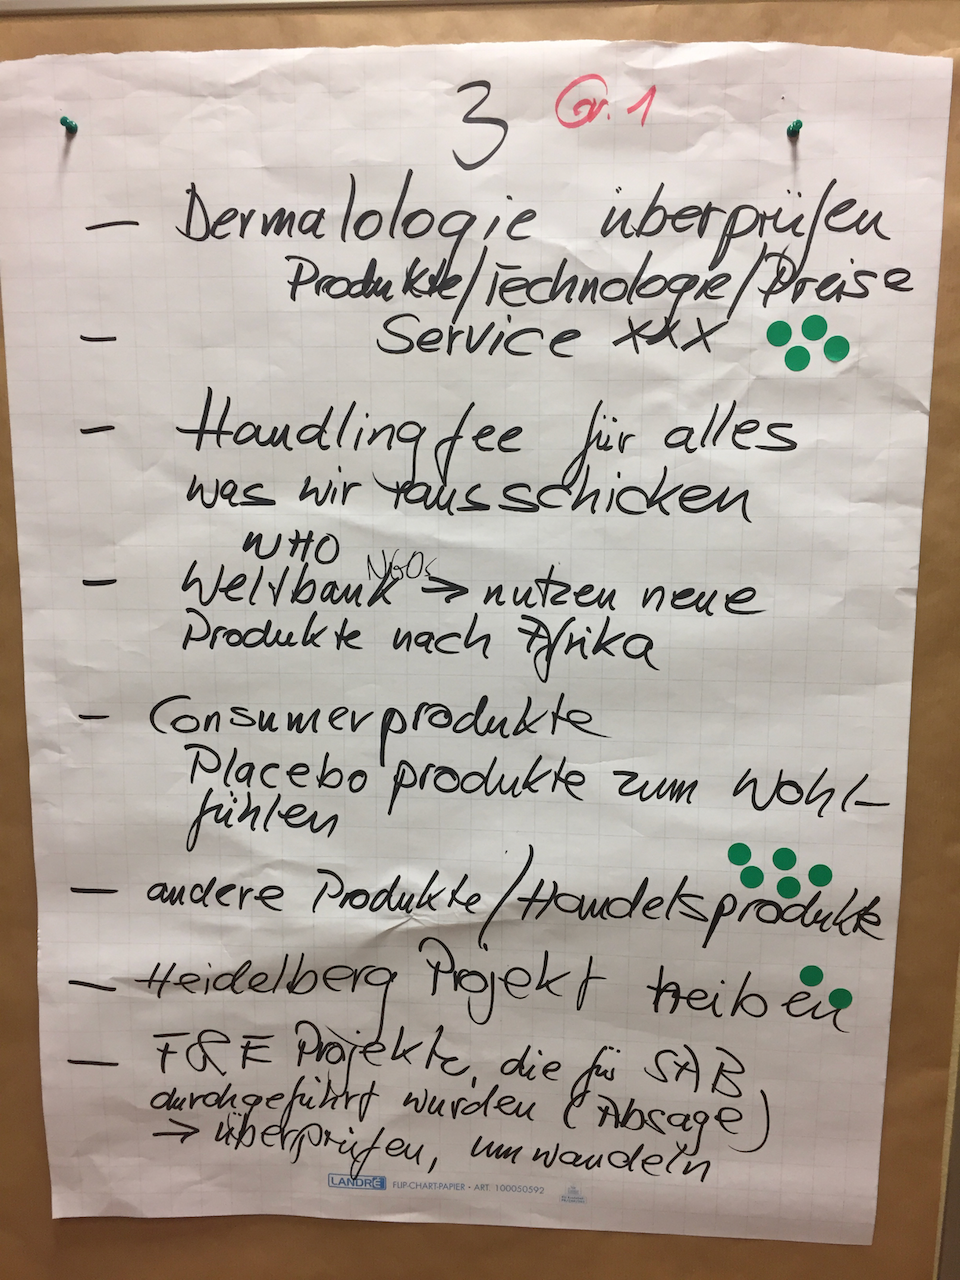 3 Gr. 1
- Dermatologie überprüfen
Produkte/Technologie/Preise
- Service xxx
- Handlingfee für alles
was wir rausschicken
WHO
- Weltbank NGOs → nutzen neue
Produkte nach Afrika
- Consumerprodukte
Placeboprodukte zum Wohl-
fühlen
- andere Produkte/Handelsprodukte
- Heidelberg Projekt treiben
- F&E Projekte, die für SAB
durchgeführt wurden (Absage)
→ überprüfen, umwandeln
LANDRÉ FLIP-CHART-PAPIER • ART. 100050592